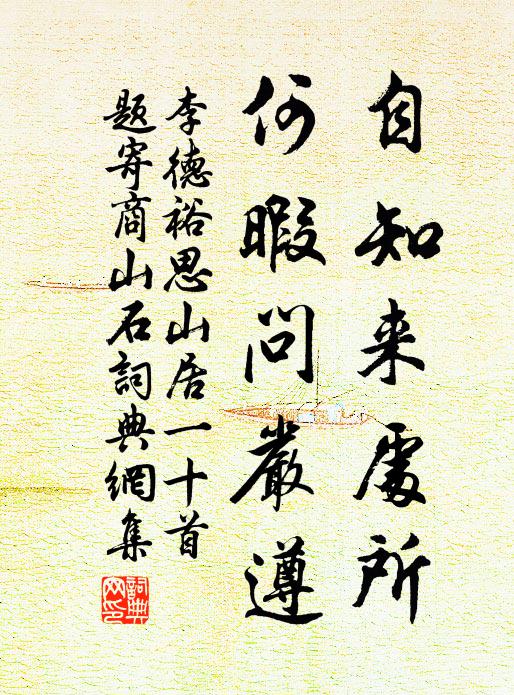 自知来處所
何暇問嚴遵
李德裕思山居一十首
題寄商山石詞典網集
詞典
网印